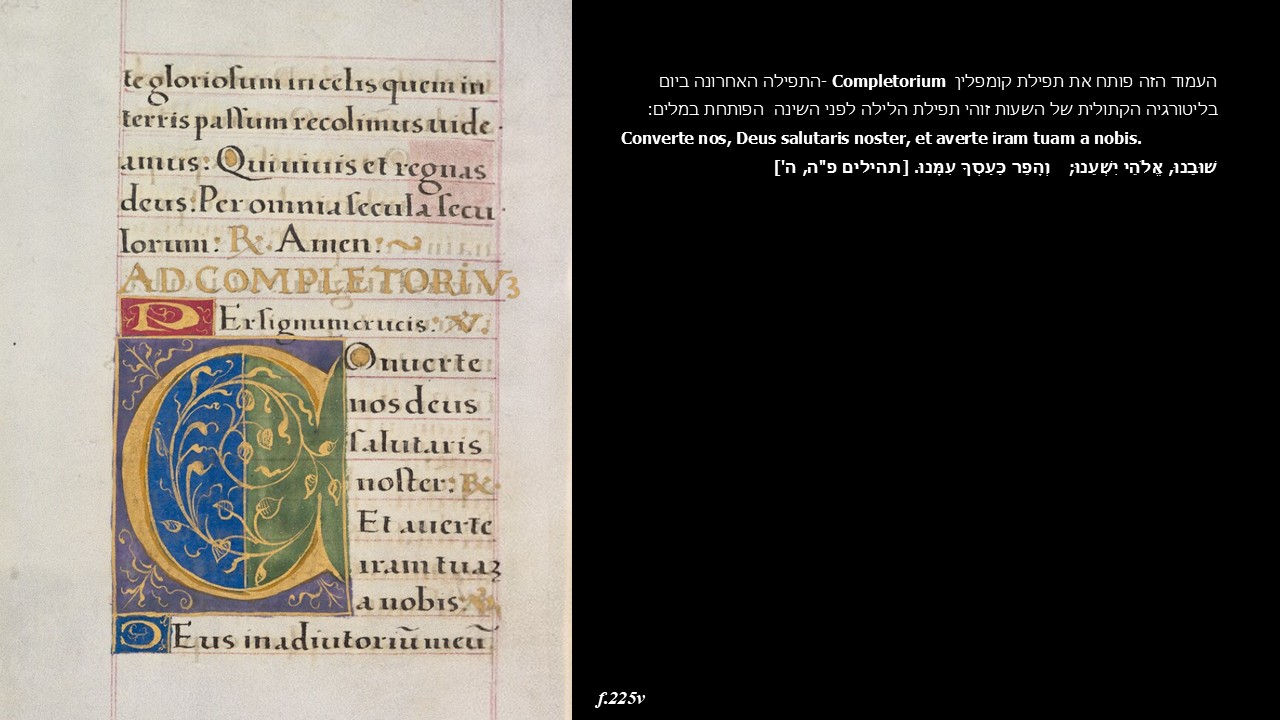 te gloriosum in celis quem in
terris passum recolimus uide
amus: Qui uiuis et regnas
deus: Per omnia secula secu
lorum: ℟. Amen:
AD COMPLETORIVꝫ
PEr signum crucis: ℣.
COnuerte
nos deus
salutaris
noster: ℟.
Et auerte
iram tuaꝫ
a nobis: ℣.
DEus in adiutoriū meū
העמוד הזה פותח את תפילת קומפלין Completorium -התפילה האחרונה ביום
בליטורגיה הקתולית של השעות זוהי תפילת הלילה לפני השינה הפותחת במלים:
Converte nos, Deus salutaris noster, et averte iram tuam a nobis.
שׁוּבֵנוּ, אֱלֹהֵי יִשְׁעֵנוּ; וְהָפֵר כַּעַסְךָ עִמָּנוּ. [תהילים פ"ה, ה']
f.225v